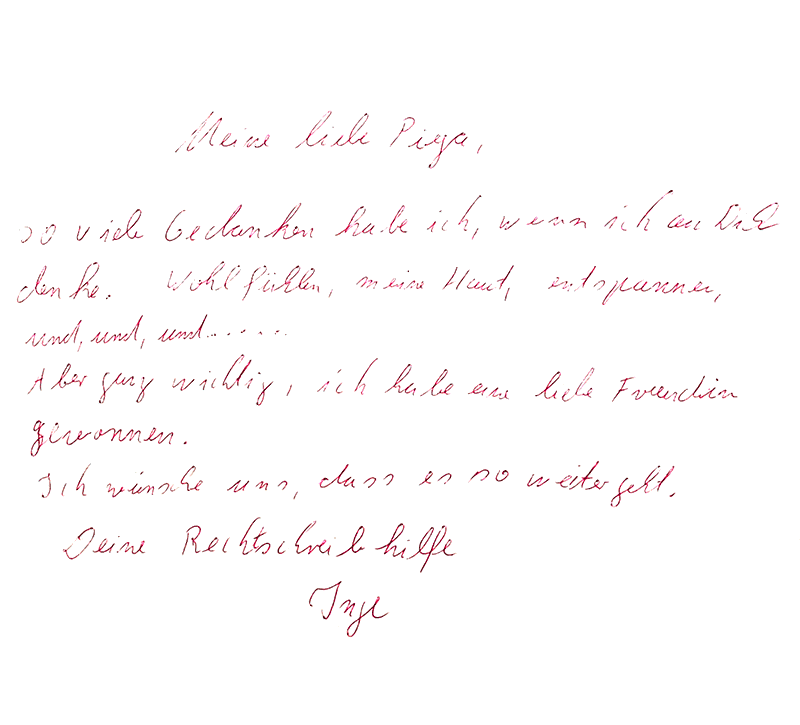 Meine liebe Piega,
so viele Gedanken habe ich, wenn ich an Dich
denke. Wohlfühlen, meine Haut, entspannen,
und, und, und.....
Aber ganz wichtig, ich habe eine liebe Freundin
gewonnen.
Ich wünsche uns, dass es so weiter geht.
Deine Rechtschreibhilfe
Inge